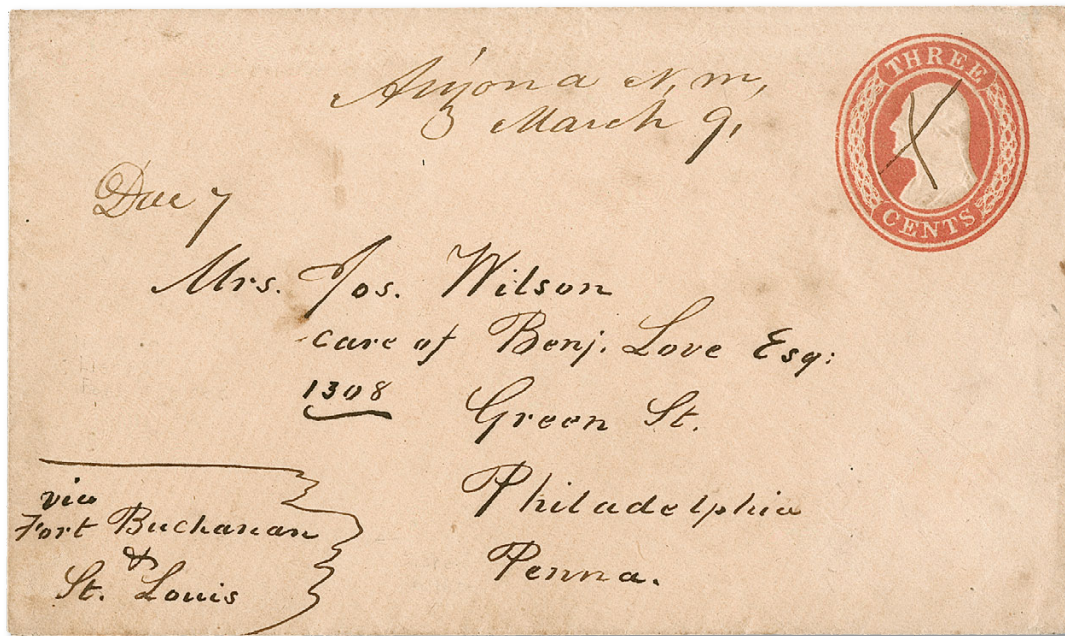 Arizona N. M,
March 9,
THREE
CENTS
Due 7
Mrs. Jos. Wilson
care of Benj. Love Esq:
1308 Green St.
Philadelphia
Penna.
via
Fort Buchanan
&
St. Louis